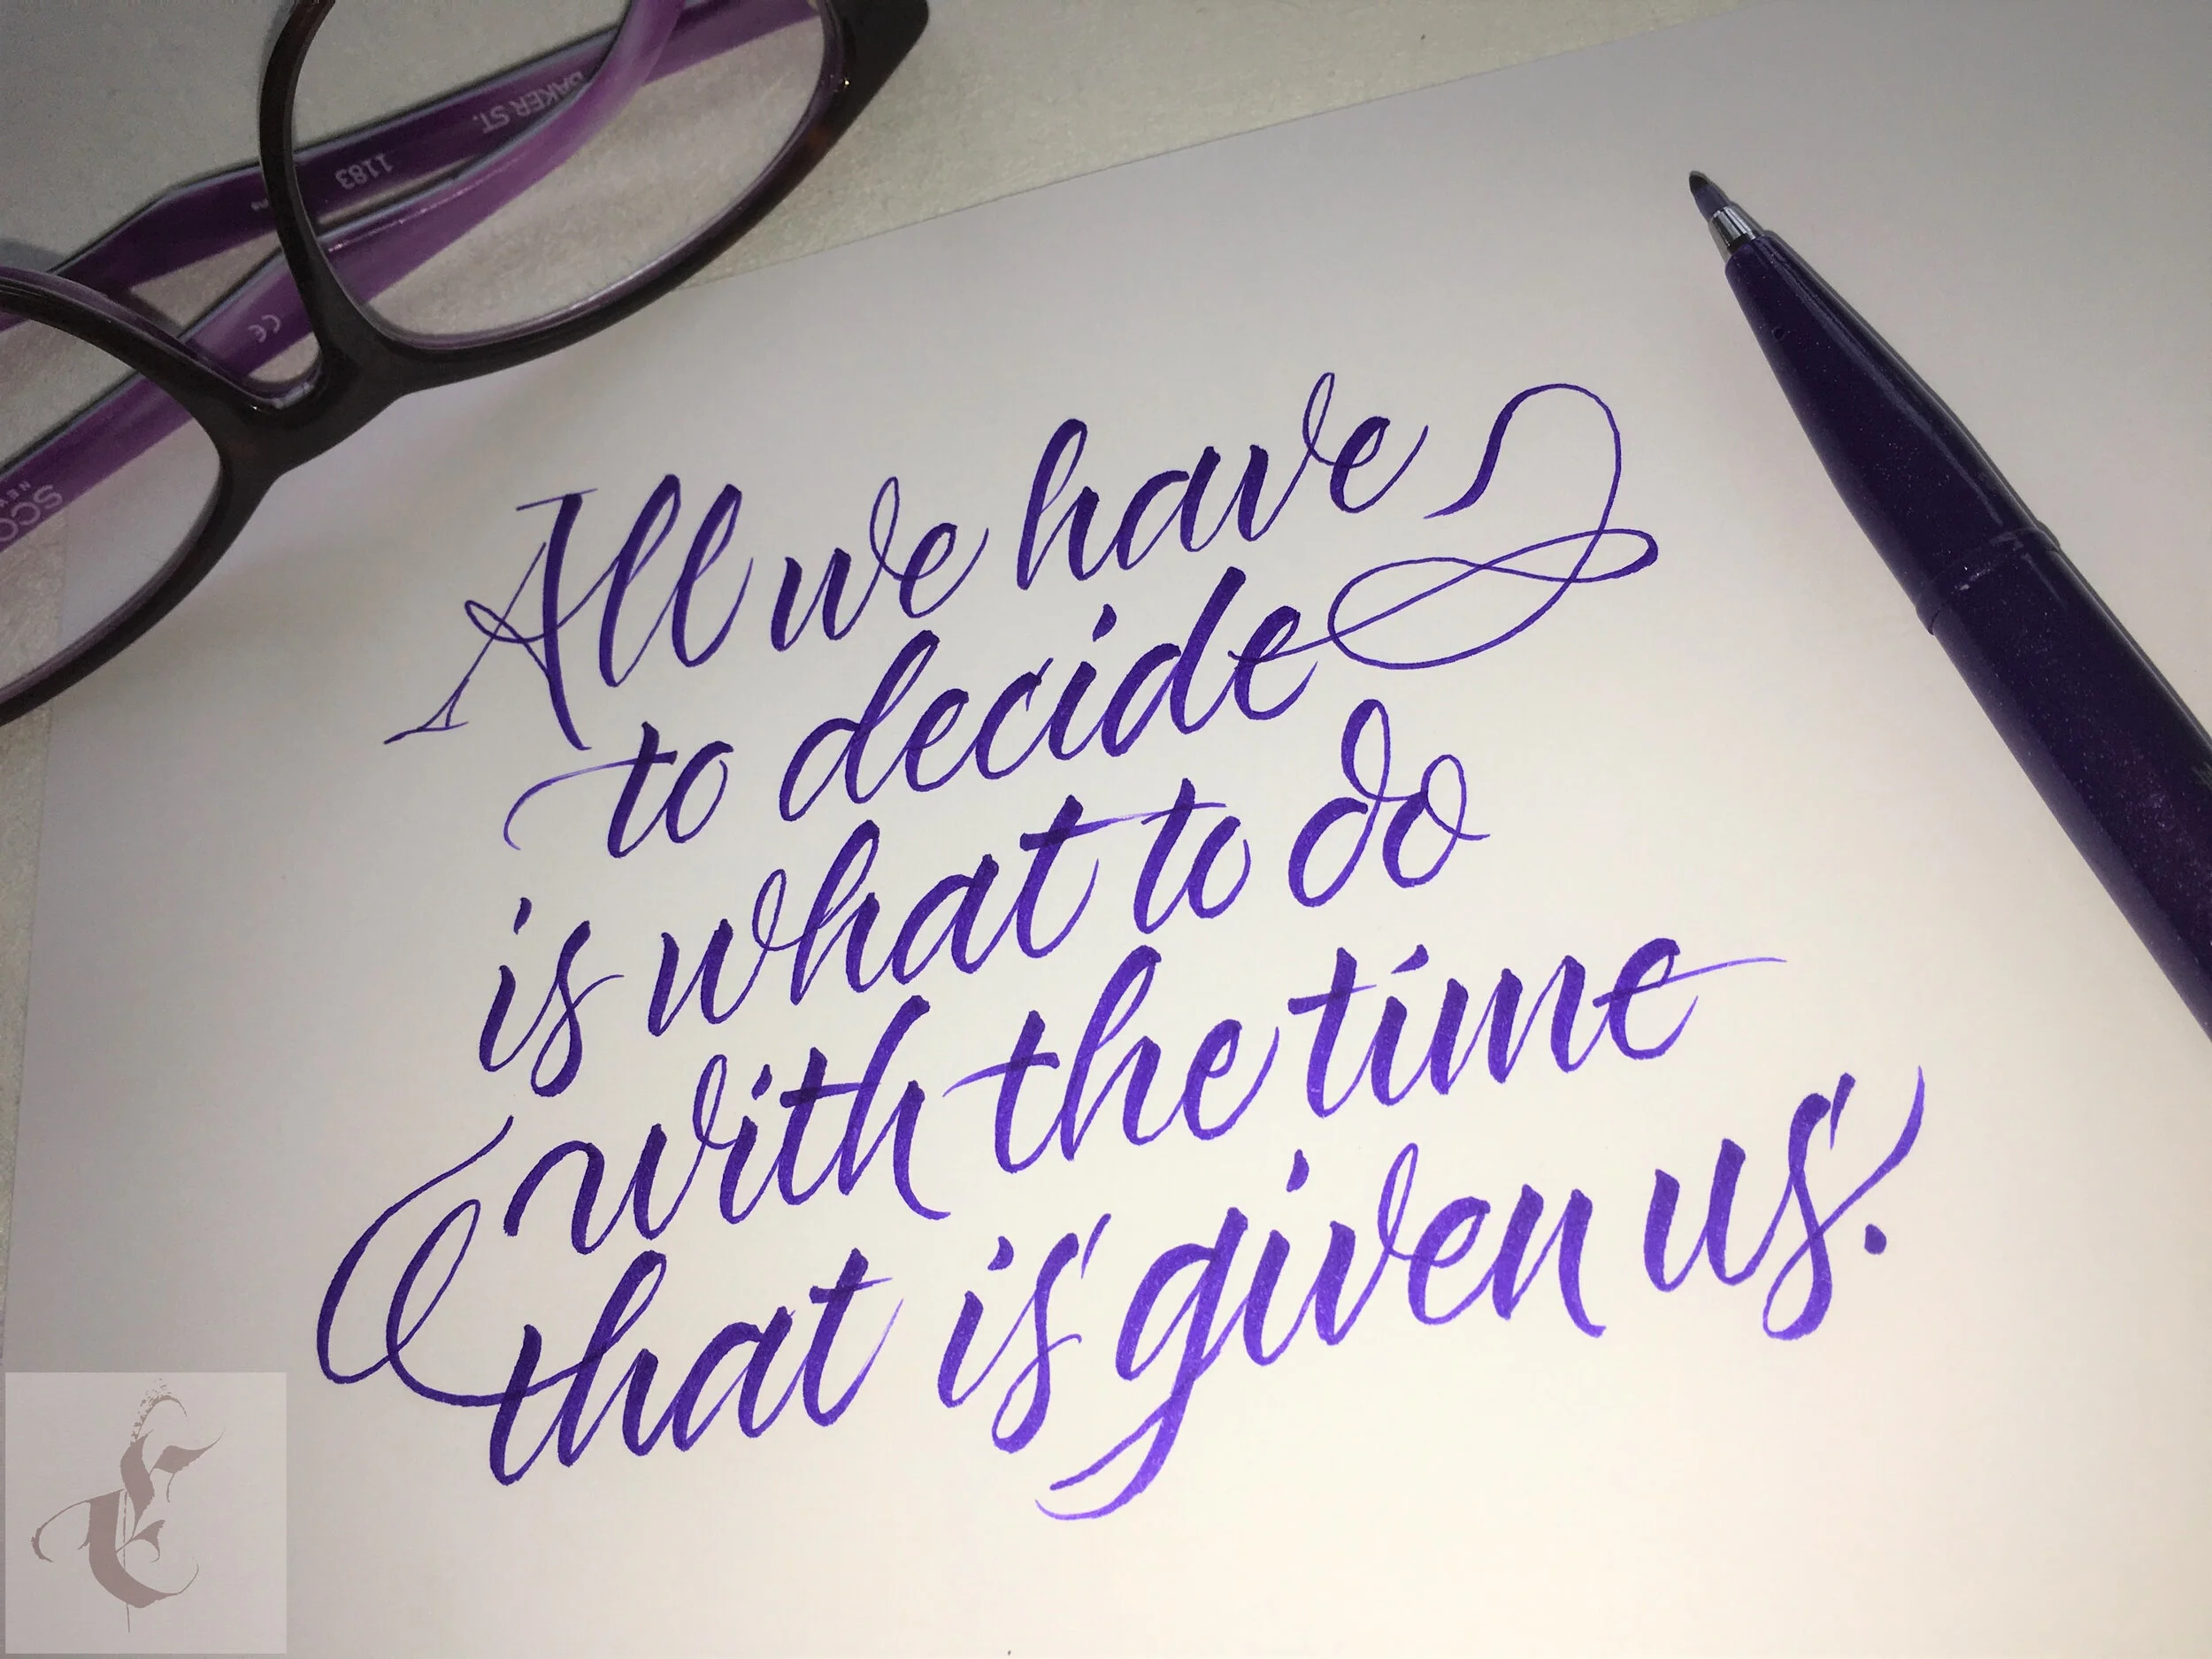 BAKER ST.
1183
CE
All we have
to decide
is what to do
with the time
that is given us.